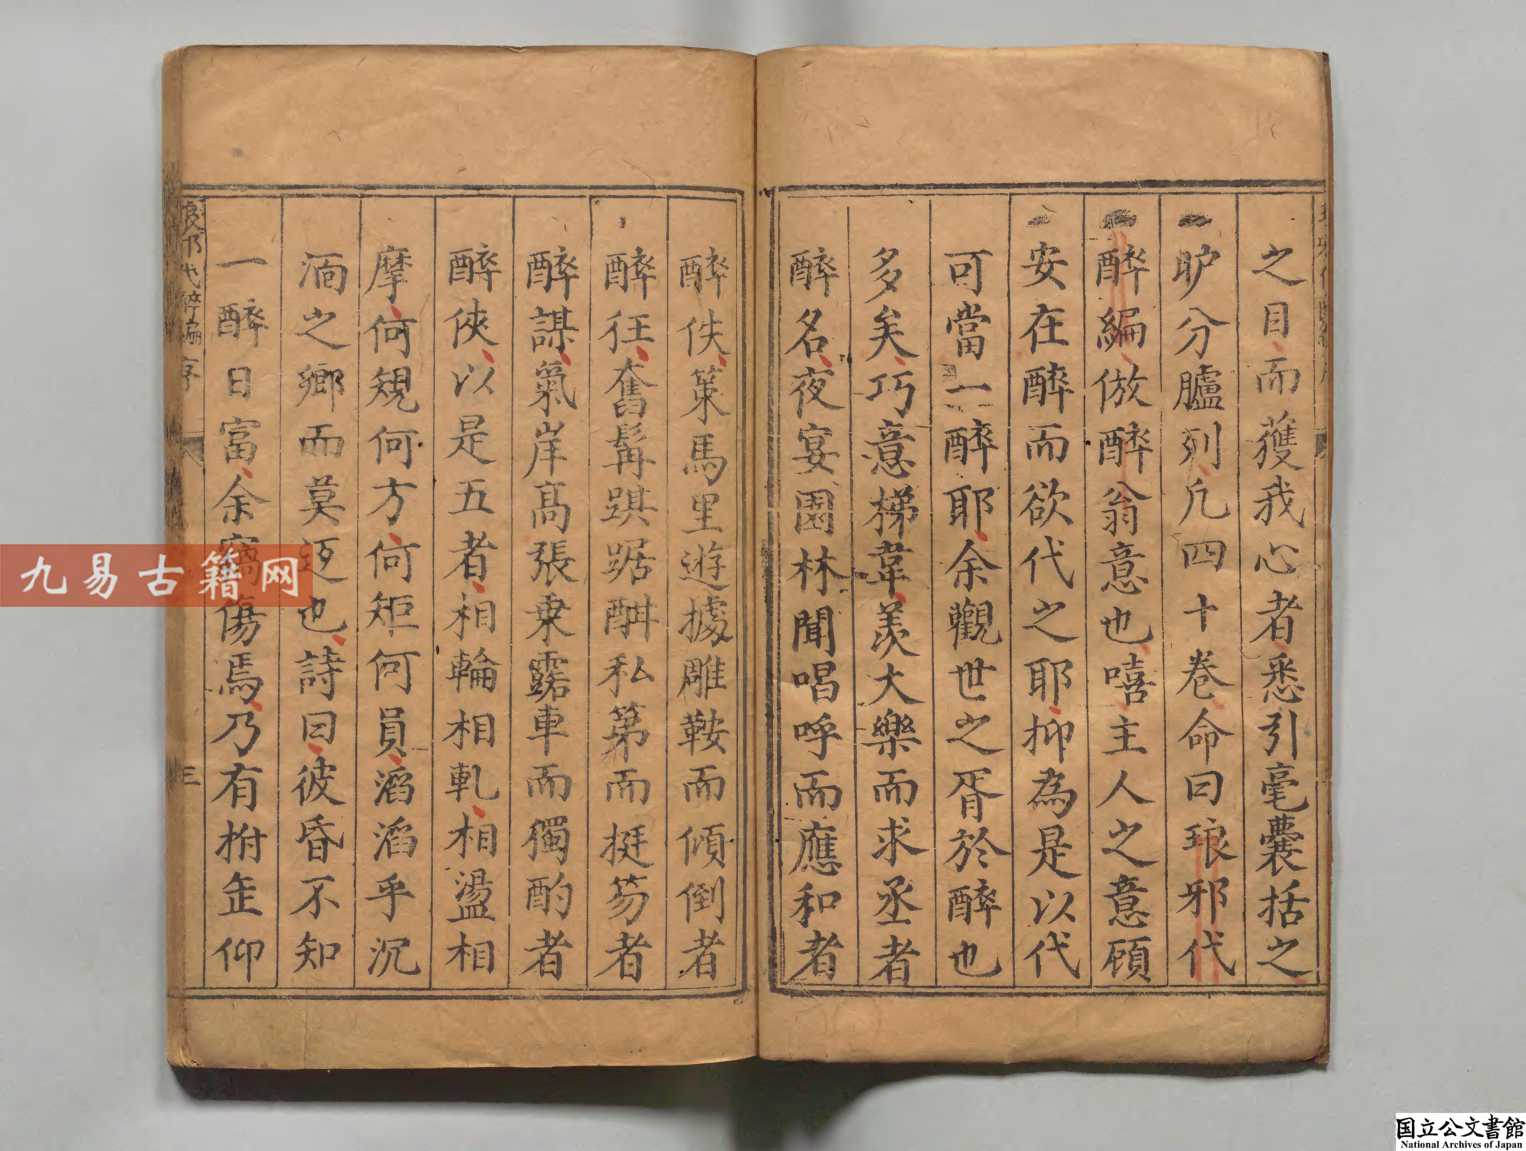 之目而獲我心者悉引毫囊括之
眆分臚列凡四十卷命曰琅邪代
醉編倣醉翁意也嘻主人之意顧
安在醉而欲代之耶抑為是以代
可當一醉耶余觀世之胥於醉也
多矣巧意梯韋羨大樂而求丞者
醉名夜宴園林聞唱呼而應和者
醉佚策馬里遊據雕鞍而傾倒者
醉狂奮髯踑踞酣私第而挺笏者
醉謀氣岸高張乗露車而獨酌者
醉俠以是五者相輪相軋相盪相
摩何規何方何矩何員滔滔乎沉
湎之鄉而莫迈也詩曰彼昏不知
一醉日富余竊傷焉乃有拊缶仰
琅邪代醉編 序
三
九易古籍网
国立公文書館
National Archives of Japan